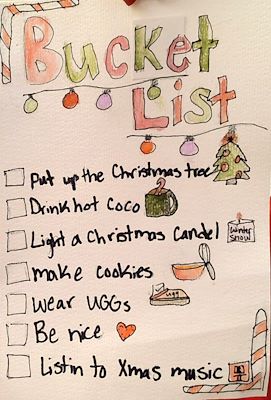 Bucket
List
Put up the Christmas tree
Drink hot Coco
Light a Christmas Candel
Winter
Snow
make cookies
Wear UGGs
Ugg
Be nice
Listin to Xmas music